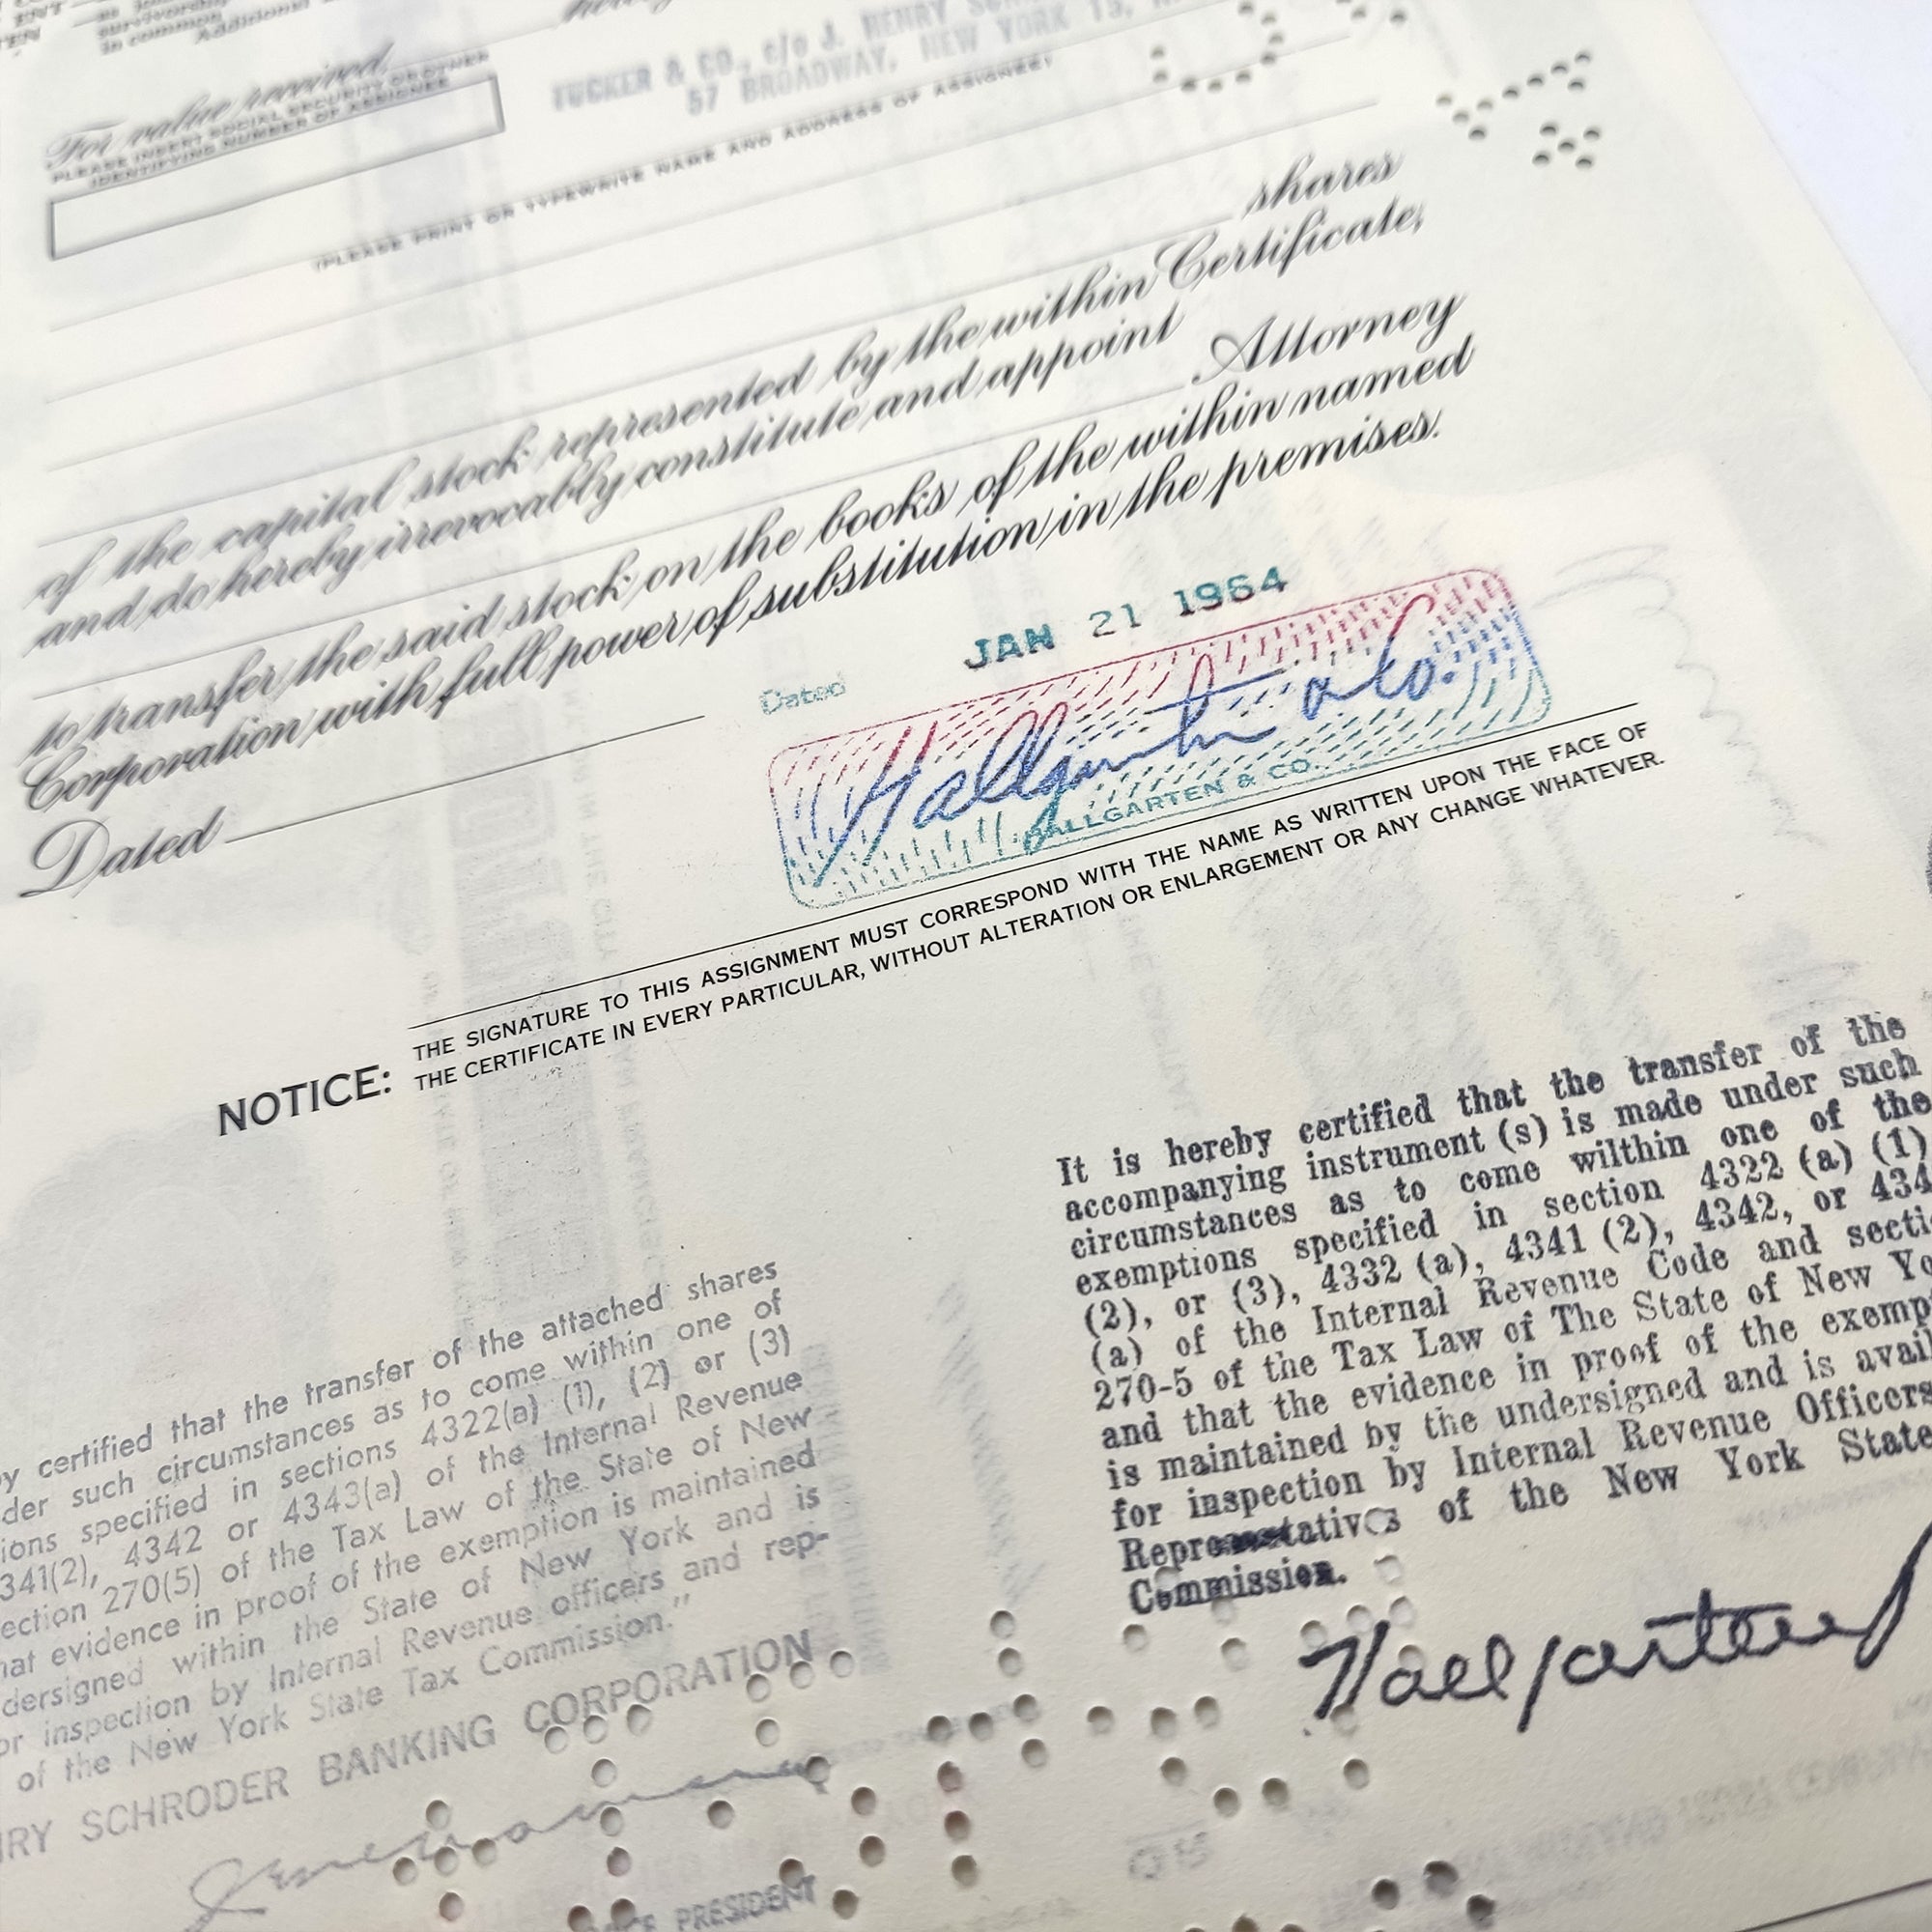 survivorship
in common
Additional
For value received,
PLEASE INSERT SOCIAL SECURITY OR OTHER
IDENTIFYING NUMBER OF ASSIGNEE
TUCKER & CO., c/o J. HENRY
57 BROADWAY, NEW YORK 15,
(PLEASE PRINT OR TYPEWRITE NAME AND ADDRESS OF ASSIGNEE)
shares
of the capital stock represented by the within Certificate,
and do hereby irrevocably constitute and appoint
Attorney
to transfer the said stock on the books of the within named
Corporation with full power of substitution in the premises.
Dated JAN 21 1964
Dated
Hallgarten & Co.
HALLGARTEN & CO.
NOTICE: THE SIGNATURE TO THIS ASSIGNMENT MUST CORRESPOND WITH THE NAME AS WRITTEN UPON THE FACE OF
THE CERTIFICATE IN EVERY PARTICULAR, WITHOUT ALTERATION OR ENLARGEMENT OR ANY CHANGE WHATEVER.
It is hereby certified that the transfer of the
accompanying instrument (s) is made under such
circumstances as to come wilthin one of the
exemptions specified in section 4322 (a) (1)
(2), or (3), 4332 (a), 4341 (2), 4342, or 434
(a) of the Internal Revenue Code and secti
270-5 of the Tax Law of The State of New Yo
and that the evidence in proof of the exemp
is maintained by the undersigned and is avail
for inspection by Internal Revenue Officers
Representatives of the New York State
Commission.
Hallgarten
y certified that the transfer of the attached shares
der such circumstances as to come within one of
ions specified in sections 4322(a) (1), (2) or (3)
341(2), 4342 or 4343(a) of the Internal Revenue
ection 270(5) of the Tax Law of the State of New
hat evidence in proof of the exemption is maintained
dersigned within the State of New York and is
or inspection by Internal Revenue officers and rep-
of the New York State Tax Commission."
NRY SCHRODER BANKING CORPORATION
VICE PRESIDENT